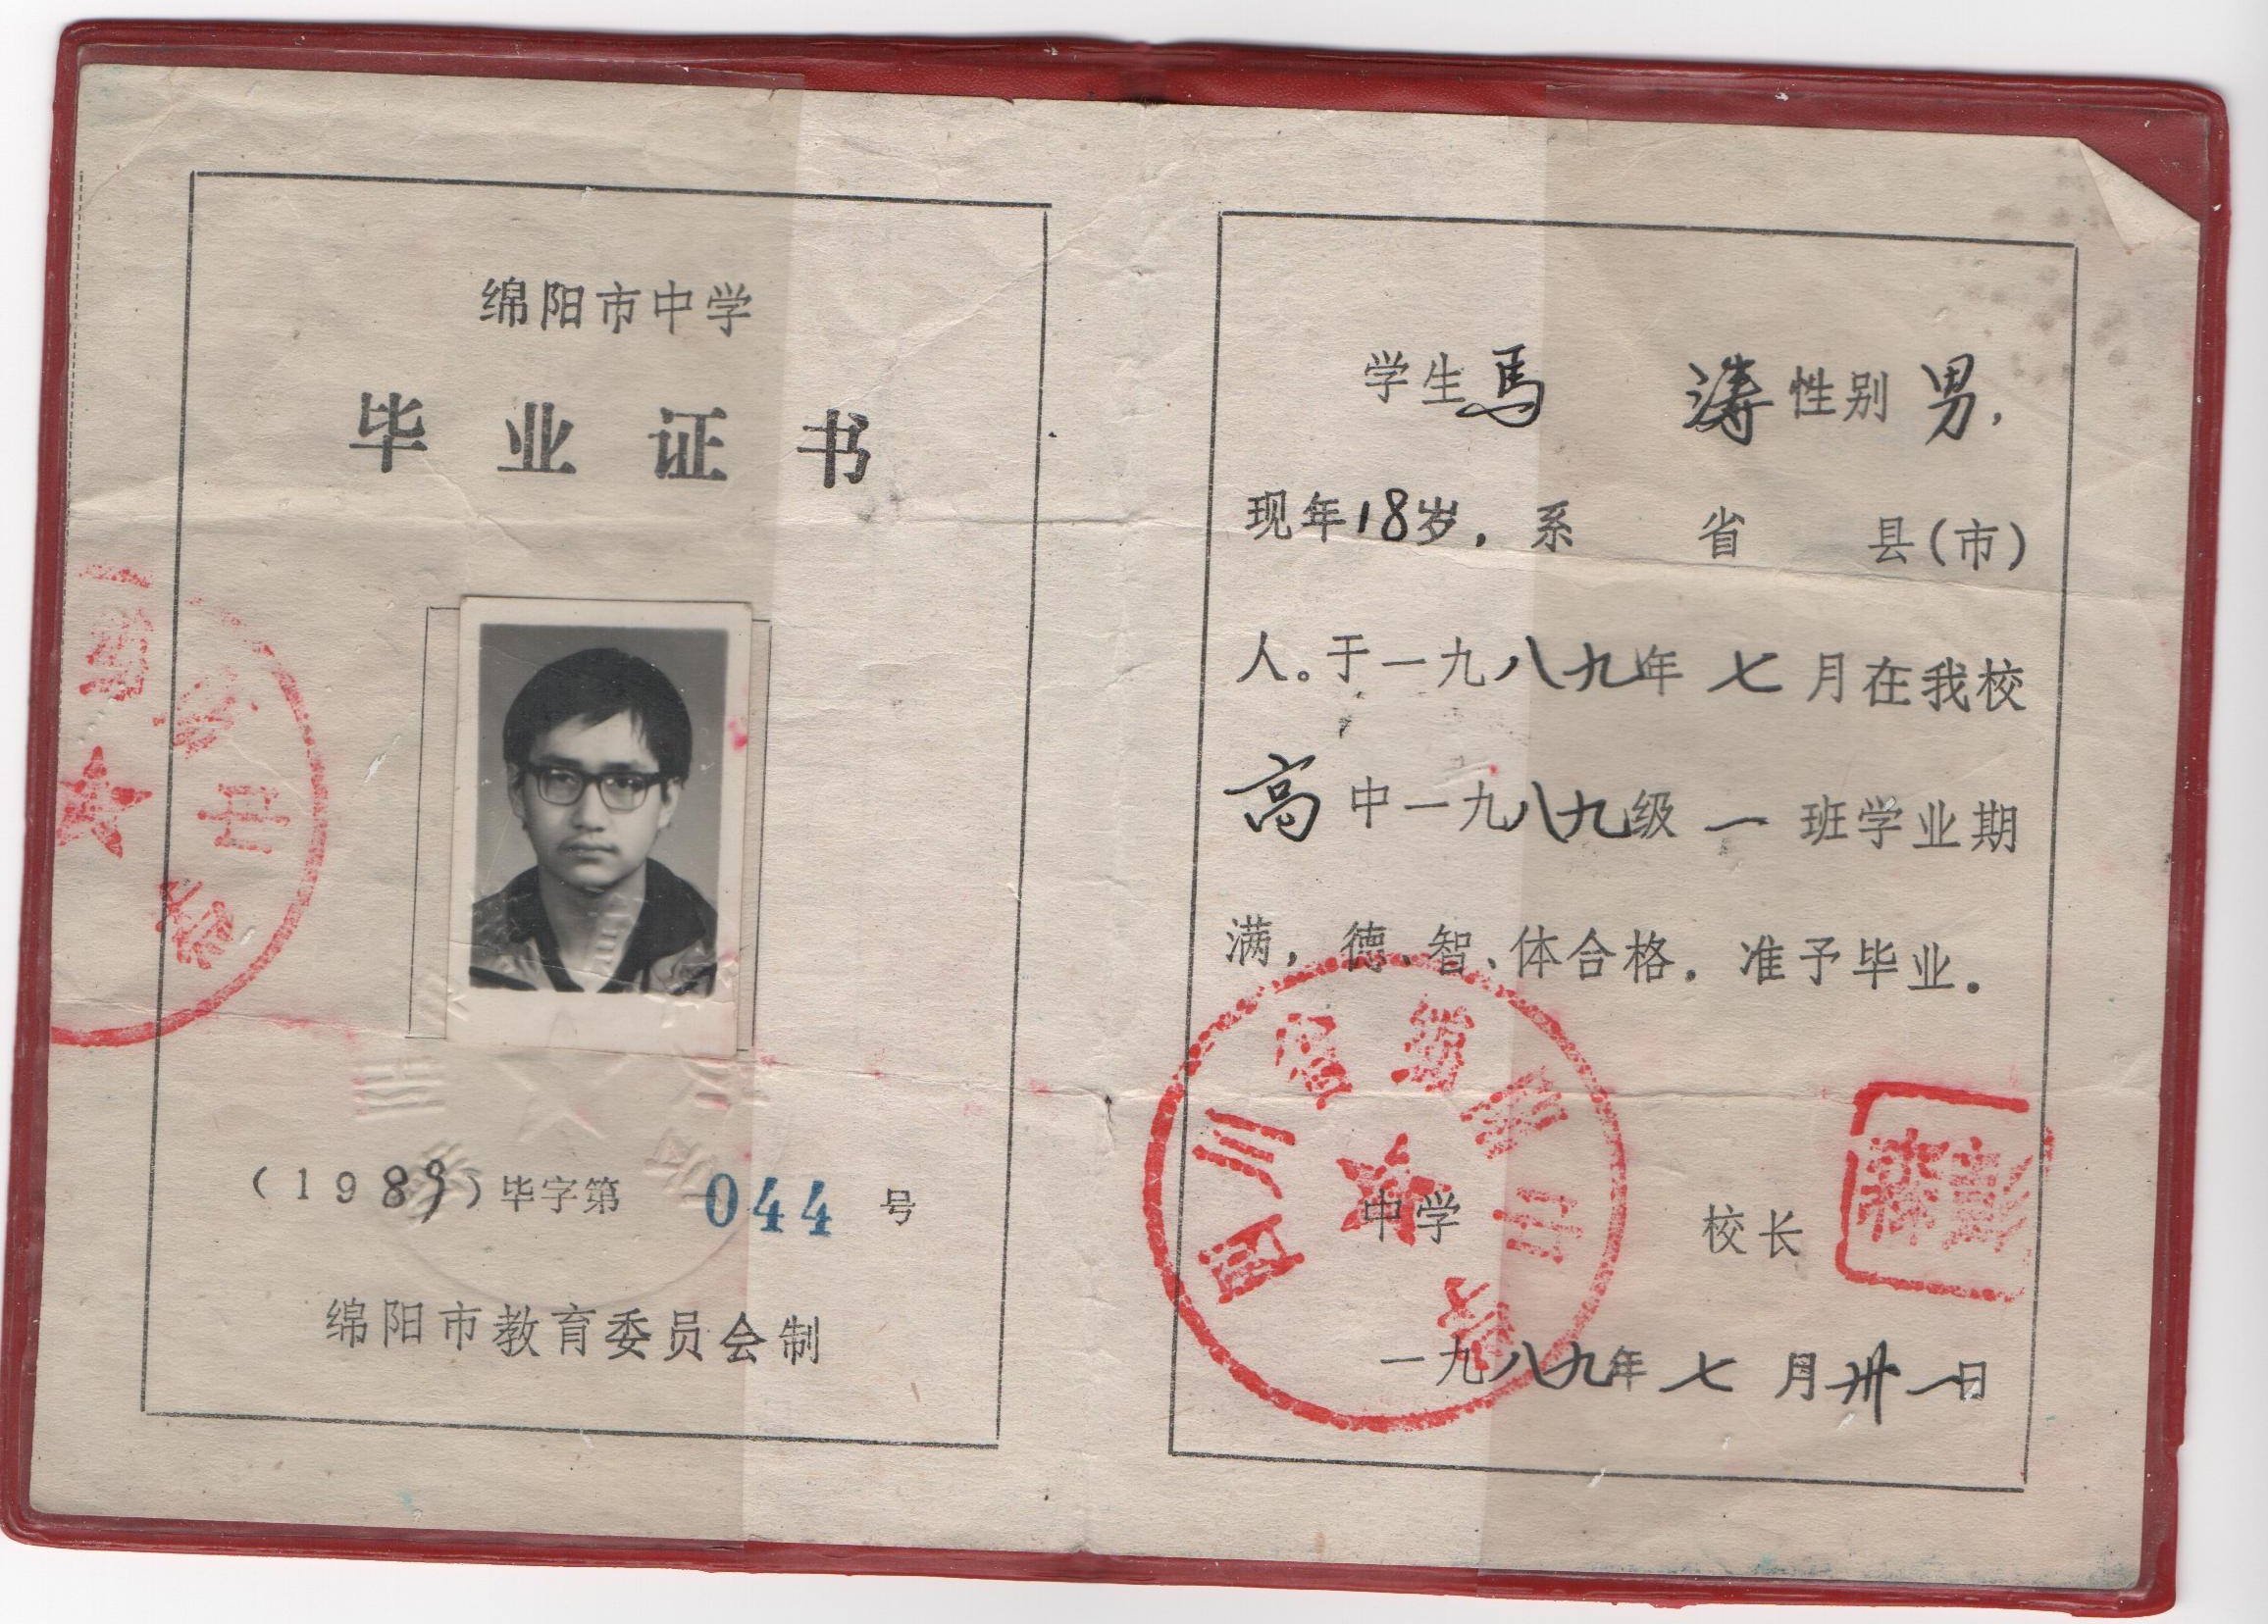 绵阳市中学
毕业证书
(1989)毕字第 044 号
绵阳市教育委员会制
学生馬 涛性别男,
现年18岁,系 省 县(市)
人。于一九八九年七月在我校
高中一九八九级一班学业期
满,德、智、体合格。准予毕业。
中学 校长
一九八九年七月卅一日